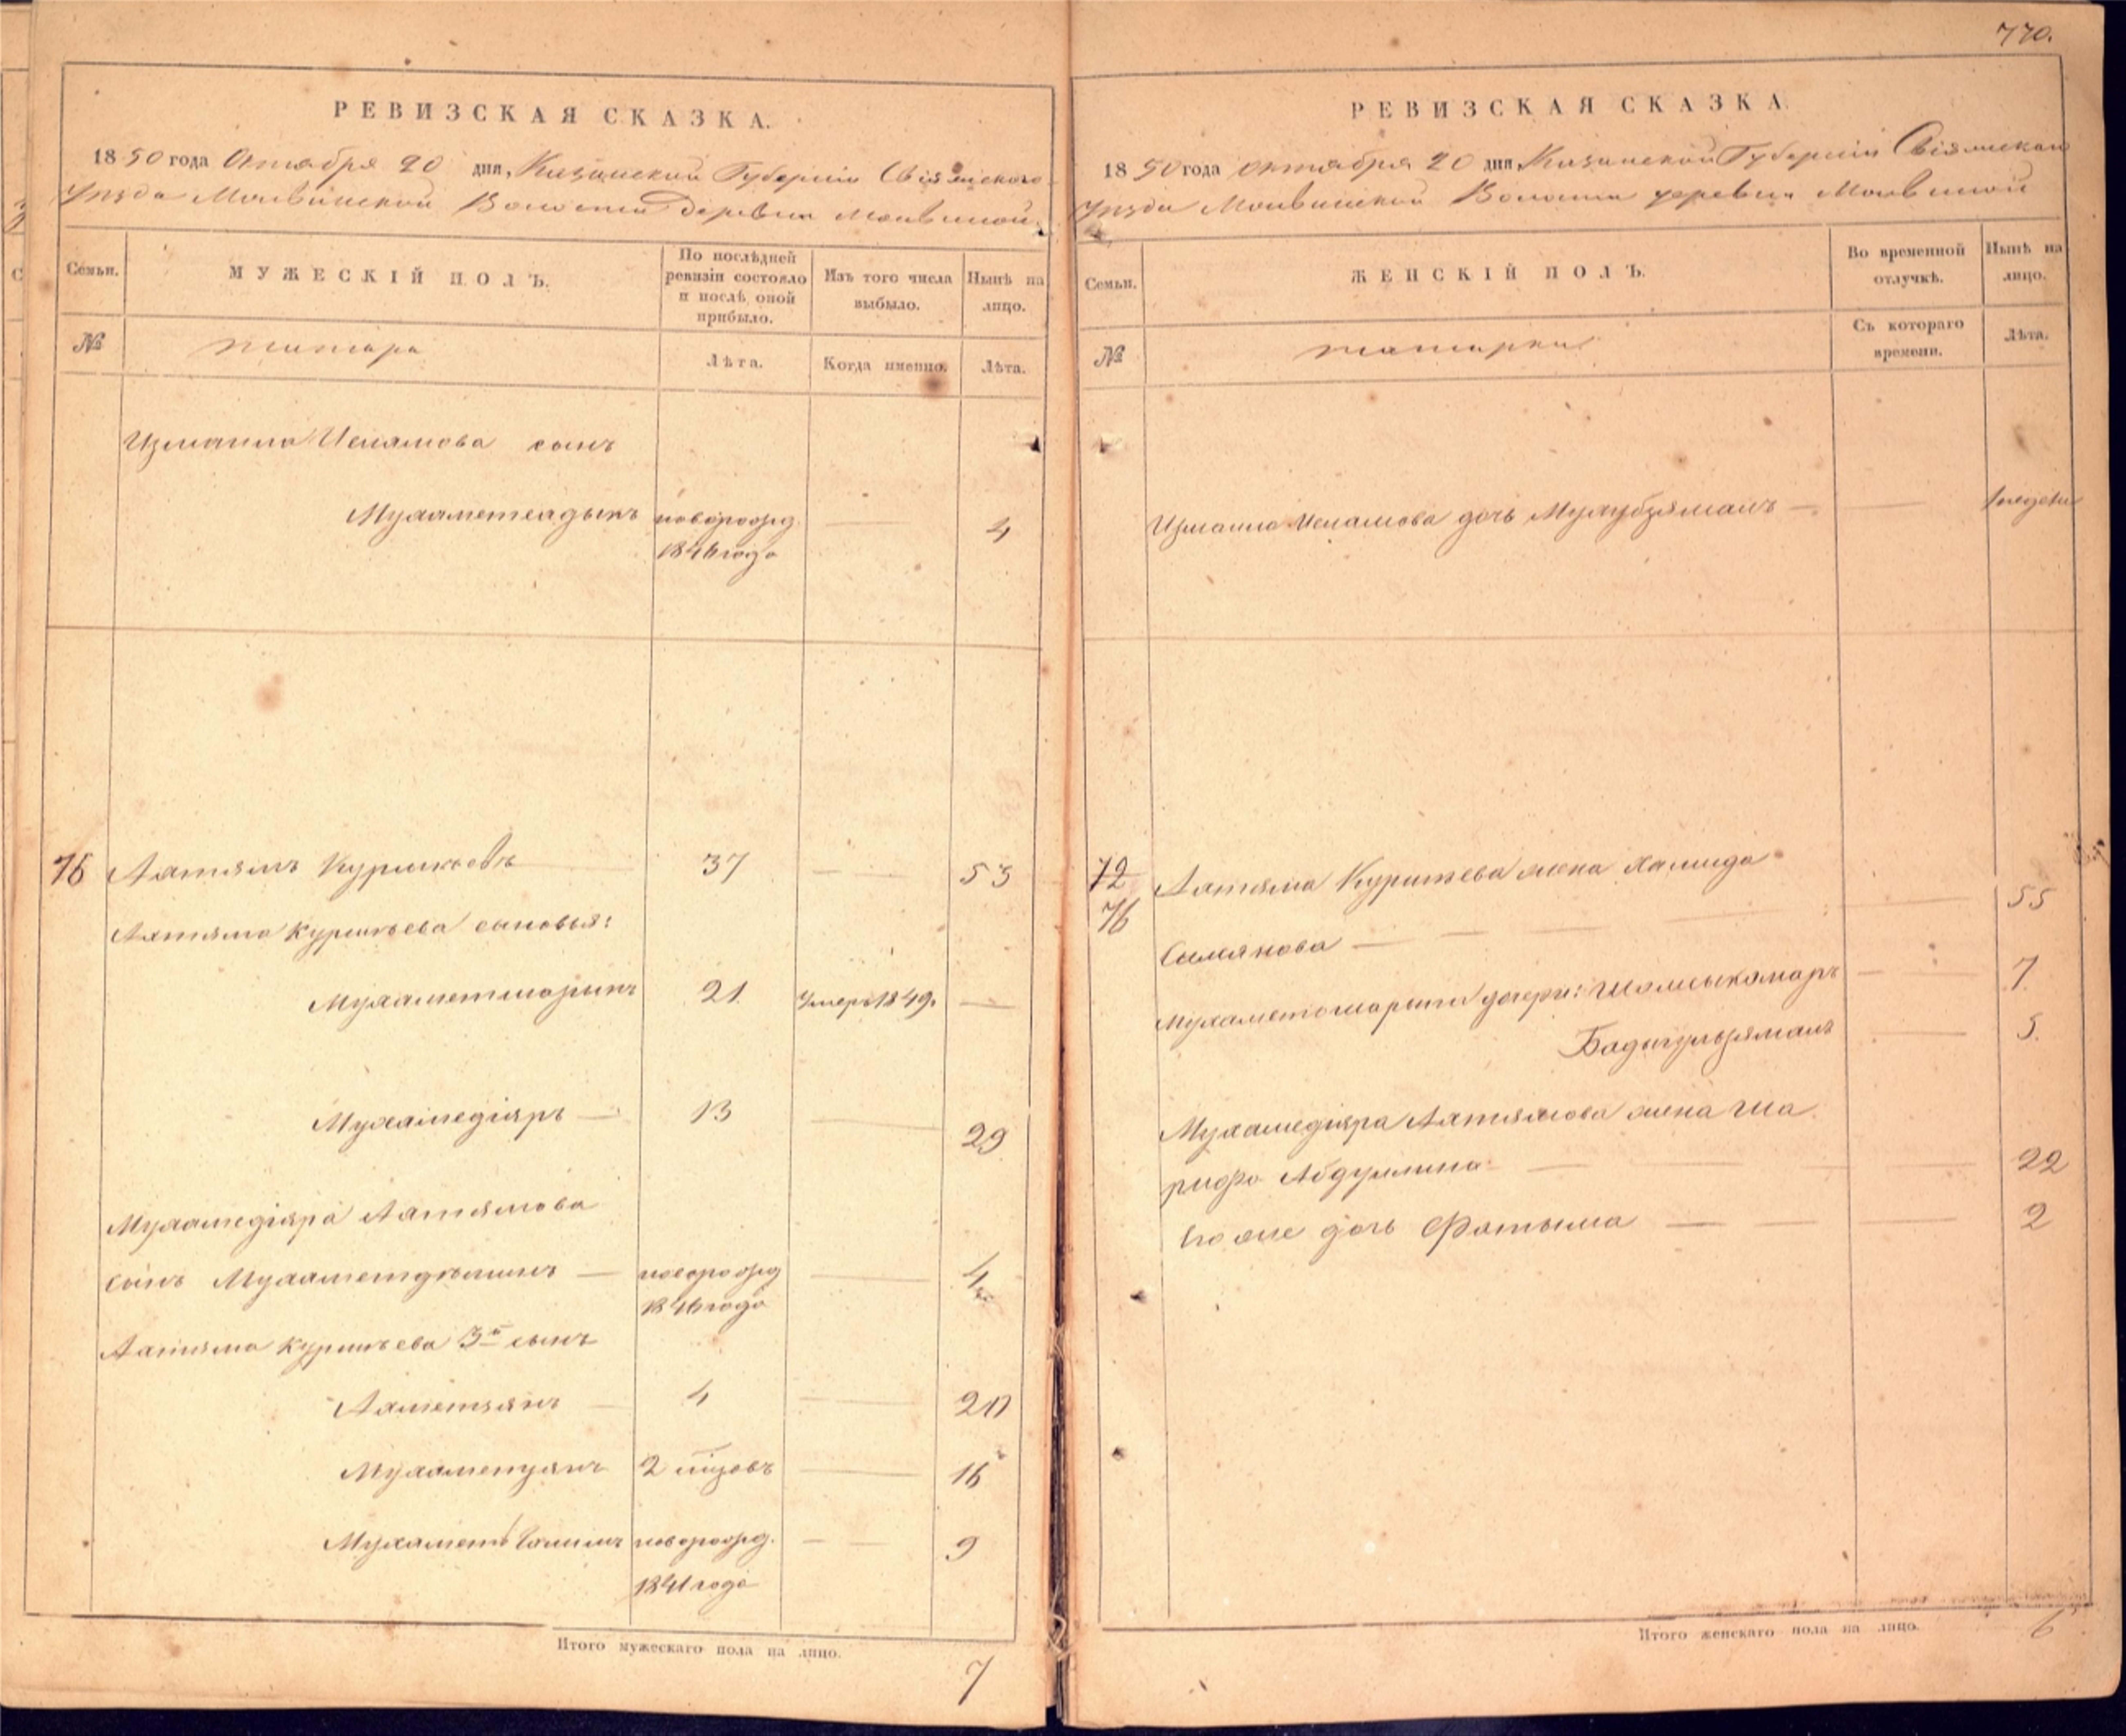 770.
РЕВИЗСКАЯ СКАЗКА.
1850 года Октября 20 дня, Казанской Губернии Свіяжскаго
Уѣзда Молвинской Волости Деревни Молвиной.
Семьи.
МУЖЕСКІЙ ПОЛЪ.
По послѣдней ревизіи состояло и послѣ оной прибыло.
Изъ того числа выбыло.
Нынѣ на лицо.
№
татара
Лѣта.
Когда именно.
Лѣта.
Измаила Ислямова сынъ
Мухаметсадыкъ новорожд. 4
1846 года
76 Ахтямъ Курмаевъ 37 — 53
Ахтяма Курмаева сыновья:
Мухаметшарыпъ 21 Умеръ 1849. —
Мухамедіяръ — 13 29
Мухамедіяра Ахтямова
сынъ — новорожд 4
1846 года
Ахтяма 3й сынъ
Ахметзянъ 4 20
Мухаметзянъ 2 16
Мухаметъ Галимъ новорожд. — 9
1841 года
Итого мужескаго пола на лицо.
7
РЕВИЗСКАЯ СКАЗКА.
1850 года октября 20 дня, Казанской Губерніи Свіяжскаго
Уѣзда Молвинской Волости деревни Молвиной
Семьи.
ЖЕНСКІЙ ПОЛЪ.
Во временной отлучкѣ.
Нынѣ на лицо.
№
татарки
Съ котораго времени.
Лѣта.
Измаила Ислямова дочь —
72 Ахтяма жена Хамида
76 — 55
дочери: Шамсыкамаръ — 7
5
Мухамедіяра Ахтямова жена Ша
рифа Абдуллина — 22
Его же дочь Фатыма — 2
Итого женскаго пола на лицо.
6